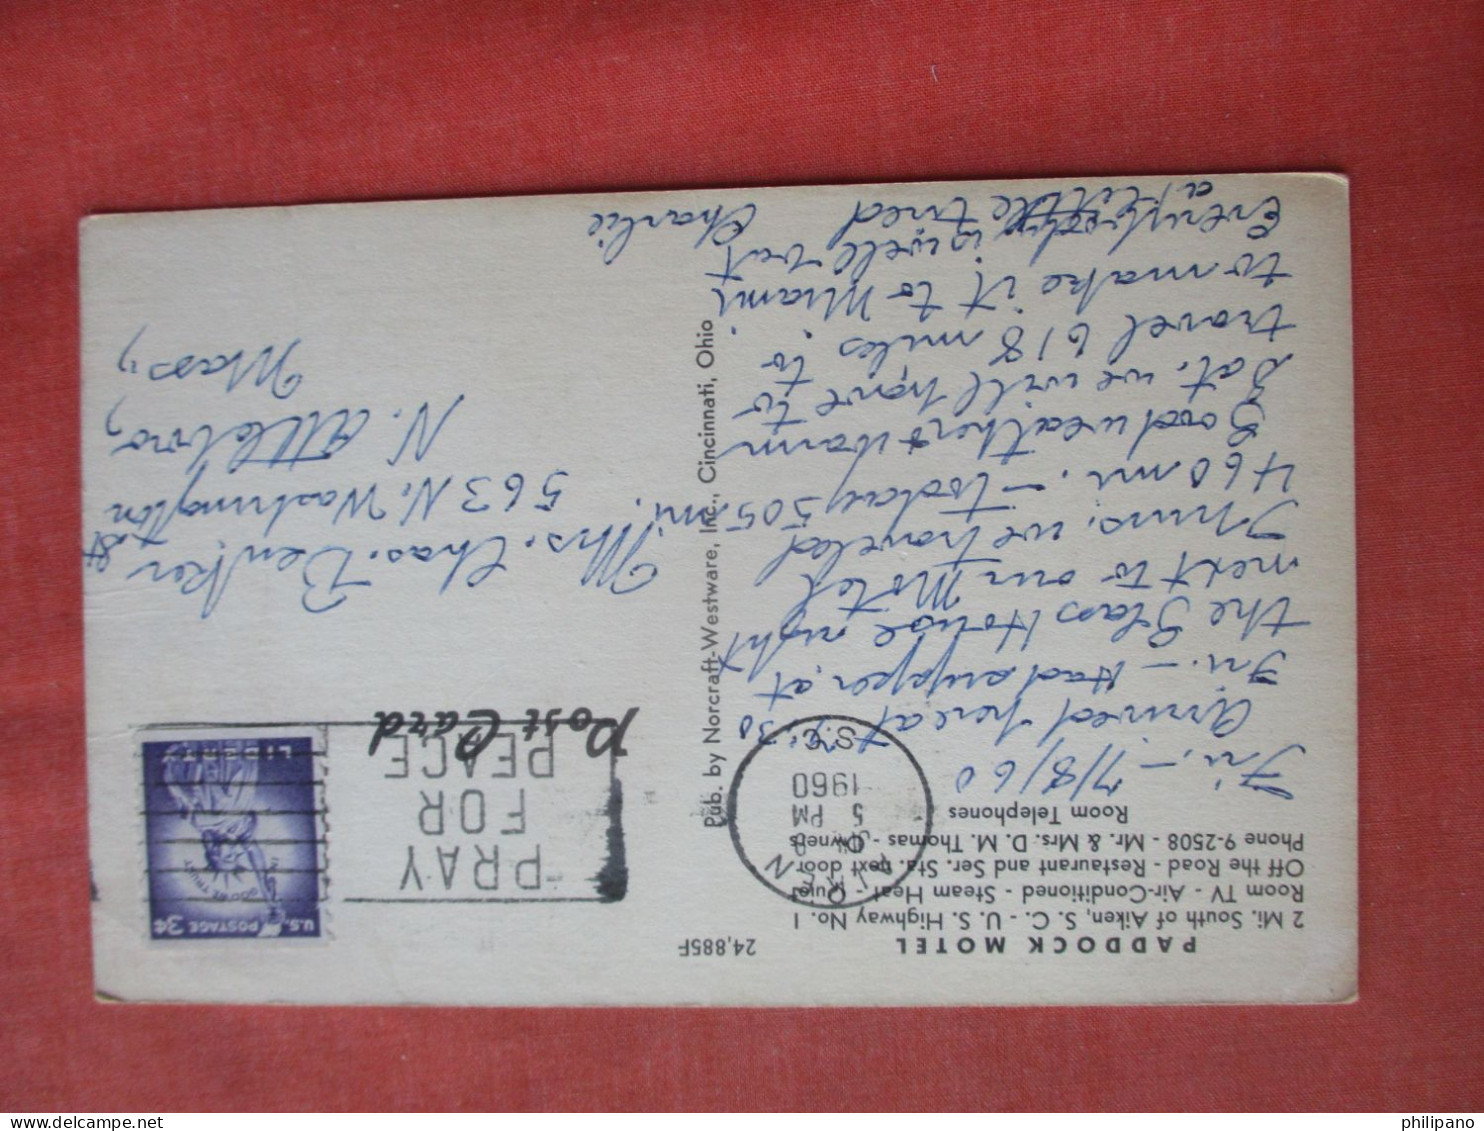 PADDOCK MOTEL
2 Mi. South of Aiken, S. C. - U. S. Highway No. 1
Room TV - Air-Conditioned - Steam Heat - Quiet
Off the Road - Restaurant and Ser. Sta. next door
Phone 9-2508 - Mr. & Mrs. D. M. Thomas - Owners
Room Telephones
24,885F
Fri. - 7/8/60
Arrived here at 4:30
Fri. - Had supper, at
the Glass House right
next to our Motel
Thurs. we traveled
460 mi. - today 505 mi.
Good weather & warm
Sat. we will have to
travel 618 miles to
to make it to Miami.
Everybody is well but
a little tired
Charlie
Pub. by Norcraft-Westware, Inc., Cincinnati, Ohio
AIKEN
5 PM
1960
S.C.
PRAY
FOR
PEACE
Post Card
U.S. POSTAGE 3¢
IN GOD WE TRUST
LIBERTY
Mrs. Chas. Benker
563 N. Washington
St
N. Attleboro,
Mass.,
philipano